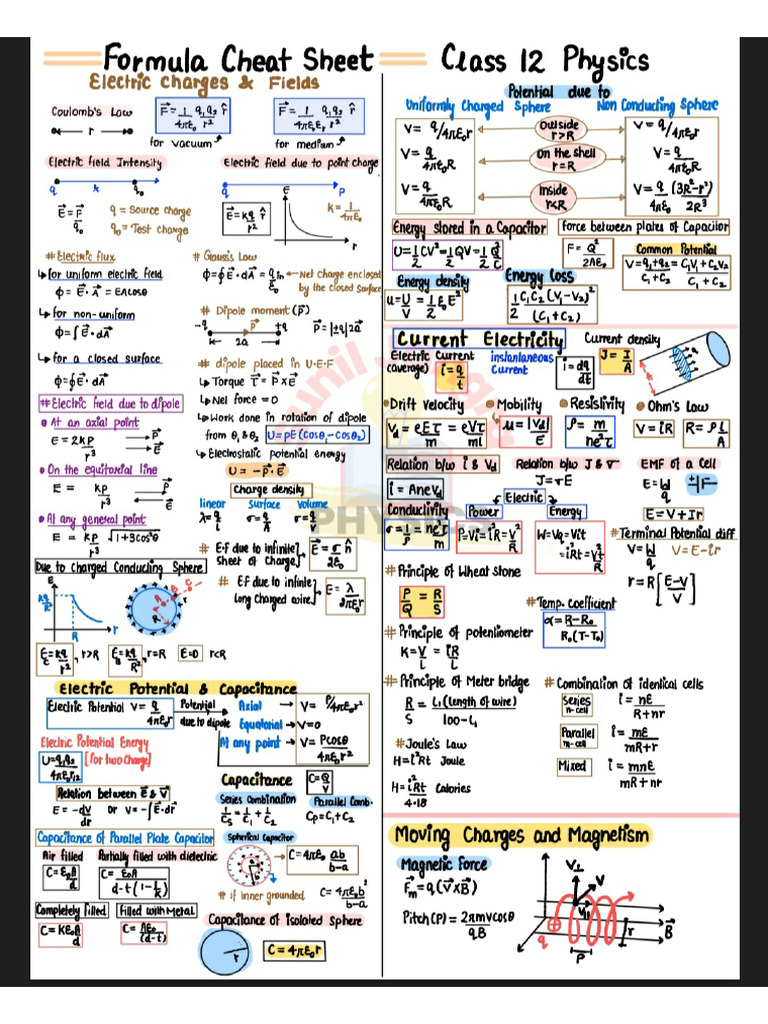 Formula Cheat Sheet
Class 12 Physics
Electric Charges & Fields
Coulomb's Law
r
F⃗ = 1/4πε₀ q₁q₂/r² r̂
for vacuum
F⃗ = 1/4πε₀εᵣ q₁q₂/r² r̂
for medium
Electric field Intensity
q r q₀
E⃗ = F⃗/q₀
q = Source charge
q₀ = Test charge
Electric field due to point charge
q E P
E⃗ = kq/r² r̂
K = 1/4πε₀
r
# Electric flux
↳ for uniform electric field
ϕ = E⃗·A⃗ = EAcosθ
↳ for non-uniform
ϕ = ∫E⃗·dA⃗
↳ for a closed surface
ϕ = ∮E⃗·dA⃗
# Gauss's Law
ϕ = ∮E⃗·dA⃗ = qin/ε₀
Net charge enclosed
by the closed Surface
# Dipole moment (P⃗)
-q P⃗ +q
2a
P⃗ = |±q|2a⃗
# dipole placed in U·E·F
↳ Torque T⃗ = P⃗×E⃗
↳ Net force = 0
↳ Work done in rotation of dipole
from θ₁ & θ₂ U = pE(Cosθ₁-Cosθ₂)
↳ Electrostatic potential energy
U = -P⃗·E⃗
# Electric field due to dipole
At an axial point
E = 2KP/r³
P⃗
E⃗
On the equitorial line
E = KP/r³
P⃗
E⃗
At any general point
E = KP/r³ √1+3cos²θ
Charge density
linear surface volume
λ = q/l σ = q/A σ = q/V
# E·f due to infinite
sheet of Charge
E⃗ = σ/2ε₀ n̂
# E·f due to infinite
long Charged wire
E = λ/2πε₀r
Due to charged Conducting Sphere
E
kq/R²
R r
E = kq/r², r>R
E = kq/R², r=R
E=0 r<R
Electric Potential & Capacitance
Electric Potential V = q/4πε₀r
Potential
due to dipole
Axial → V = P/4πε₀r²
Equatorial → V=0
At any point → V = Pcosθ/4πε₀r²
Electric Potential Energy
U = q₁q₂/4πε₀r₁₂
[for two Charge]
Relation between E⃗ & V⃗
E = -dV/dr or V = -∫E⃗·dr⃗
Capacitance
C = Q/V
Series Combination
1/Cs = 1/C₁ + 1/C₂
Parallel Comb.
Cp = C₁ + C₂
Capacitance of Parallel Plate Capacitor
Air filled
C = ε₀A/d
Partially filled with dielectric
C = ε₀A/d-t(1-1/K)
Completely filled
C = Kε₀A/d
Filled with Metal
C = Aε₀/(d-t)
Spherical Capacitor
C = 4πε₀ ab/b-a
# if inner grounded
C = 4πε₀b²/b-a
Capacitance of Isolated Sphere
r
C = 4πε₀r
Potential due to
Uniformly Charged Sphere
Non Conducting Sphere
V = q/4πε₀r
Outside
r>R
V = q/4πε₀r
V = q/4πε₀R
On the shell
r=R
V = q/4πε₀R
V = q/4πε₀R
Inside
r<R
V = q/4πε₀ (3R²-r²)/2R³
Energy stored in a Capacitor
U = 1/2 CV² = 1/2 QV = 1/2 Q²/C
Force between plates of Capacitor
F = Q²/2Aε₀
Common Potential
V = q₁+q₂/C₁+C₂ = C₁V₁+C₂V₂/C₁+C₂
Energy density
u = U/V = 1/2 ε₀E²
Energy loss
1/2 C₁C₂(V₁-V₂)²/(C₁+C₂)
Current Electricity
Electric Current
(average)
i = q/t
instantaneous
Current
i = dq/dt
Current density
J = I/A
Drift Velocity
Vd = eEτ/m = eVτ/ml
Mobility
u = |Vd|/E
Resistivity
ρ = m/ne²τ
Ohm's Law
V = iR R = ρl/A
Relation b/w i & Vd
i = AneVd
Relation b/w J & σ
J = σE
EMF of a Cell
E = W/q
E = V + Ir
Conductivity
σ = 1/ρ = ne²τ/m
Electric
Power
P = Vi = i²R = V²/R
Energy
W = Vq = Vit
= i²Rt = V²t/R
# Terminal Potential diff
V = W/q V = E-ir
r = R[E-V/V]
# Principle of Wheat stone
P/Q = R/S
# Temp. Coefficient
α = R-R₀/R₀(T-T₀)
# Principle of potentiometer
K = V/l = iR/l
# Principle of Meter bridge
R/S = L₁(length of wire)/100-L₁
# Combination of identical cells
Series
n-cell
i = nE/R+nr
Parallel
m-cell
i = mE/mR+r
Mixed
i = mnE/mR+nr
# Joule's Law
H = i²Rt Joule
H = i²Rt/4·18 Calories
Moving Charges and Magnetism
Magnetic Force
F⃗m = q(V⃗×B⃗)
Pitch(P) = 2πmvcosθ/qB
V⊥ V
V∥
q P r B⃗
PHYSICS